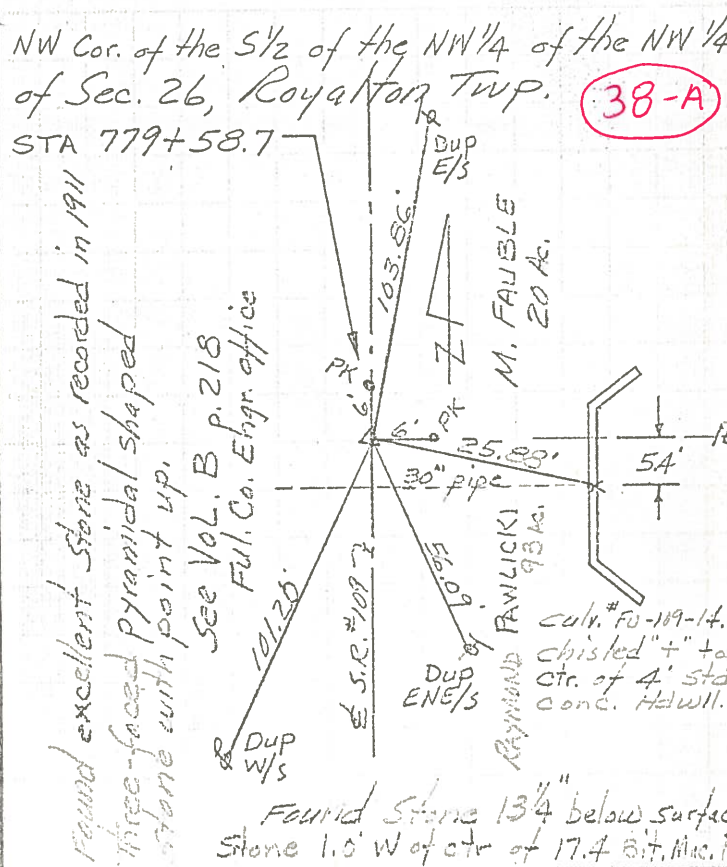 NW Cor. of the S 1/2 of the NW 1/4 of the NW 1/4
of Sec. 26, Royalton Twp.
38-A
STA 779+58.7
Dup
E/S
103.86'
M. FAUBLE
20 Ac.
Found excellent Stone as recorded in 1911
Three-faced pyramidal shaped
stone with point up.
See Vol. B p. 218
Ful. Co. Engr. office
PK
6'
6'
PK
25.88'
30" pipe
5.4'
101.28'
℄ S.R. #109
56.09'
Dup
ENE/S
RAYMOND PAWLICKI
93 Ac.
Culv. #FU-109-14.
chisled "+"
ctr. of 4' std
conc. Hdwll.
Dup
W/S
Found Stone 13 1/4" below
Stone 1.0' W of ctr of 17.4 Bit. Mac.